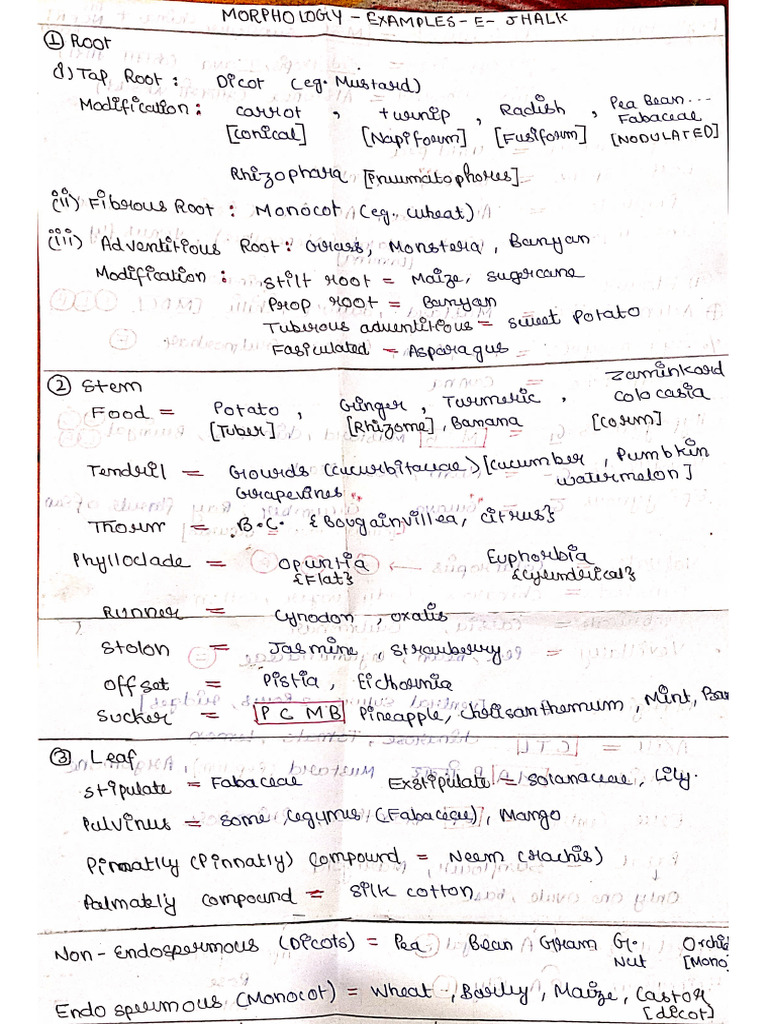 MORPHOLOGY - EXAMPLES - E - JHALK
① Root
i) Tap Root : Dicot (eg. Mustard)
Modification : carrot , turnip , Radish , Pea Bean...
Fabaceae
[conical] [Napiforum] [Fusiform] [NODULATED]
Rhizophara [Pnuumatophores]
(ii) Fibrous Root : Monocot (eg. wheat)
(iii) Adventitious Root : Grass, Monstera , Banyan
Modification : Stilt root = Maize, sugarcane
Prop root = Banyan
Tuberous adventitious = sweet Potato
Fasiculated = Asparagus
② Stem
Food = Potato , Ginger , Turmeric , Zaminkand
colocasia
[Tuber] [Rhizome] , Banana [corm]
Tendril = Gourds (cucurbitaceae) [cucumber , Pumpkin
Grapevines watermelon]
Thorn = B.C. {Bougainvillea, citrus}
Phylloclade = Opuntia Euphorbia
{Flat} {Cylindrical}
Runner = Cynodon , oxalis
Stolon = Jasmine , strawberry
Offsat = Pistia , Eichornia
Sucker = P C M B Pineapple, chrisanthemum, Mint, Ban
③ Leaf
Stipulate = Fabaceae Exstipulate = Solanaceae , Lily.
Pulvinus = Some Legumus (Fabaceae) , Mango
Pinnatly (Pinnatly) compound = Neem (rachis)
Palmately compound = Silk cotton
Non - Endospermous (Dicots) = Pea Bean Gram G. Orchi
Nut [Mono
Endospermous (Monocot) = Wheat , Barley , Maize , Castor
[dicot]